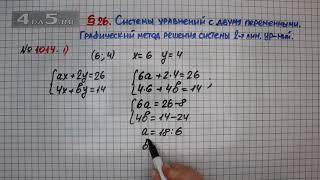 4 ПЯТЬ.
§26. Системы уравнений с двумя переменными.
Графический метод решения системы 2-х лин. ур-ний.
№ 1014. 1)
(6; 4) x=6 y=4
{ax+2y=26
4x+by=14
{6a+2·4=26
4·6+4b=14 ;
{6a=26-8
4b=14-24
a=18:6
b